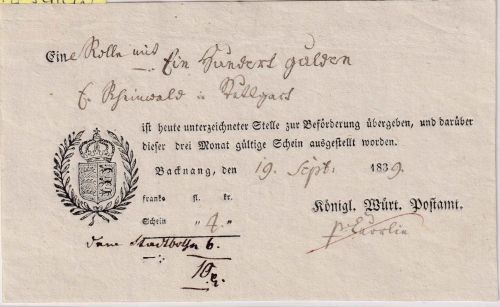 Eine Rolle mit Ein Hundert Gulden
E. Rheinwald in Stuttgart
ist heute unterzeichneter Stelle zur Beförderung übergeben, und darüber
dieser drei Monat gültige Schein ausgestellt worden.
Backnang, den 19. Sept. 1839.
franko fl. kr.
Schein " 4. "
dem Stadtboten 6.
10
Königl. Würt. Postamt.